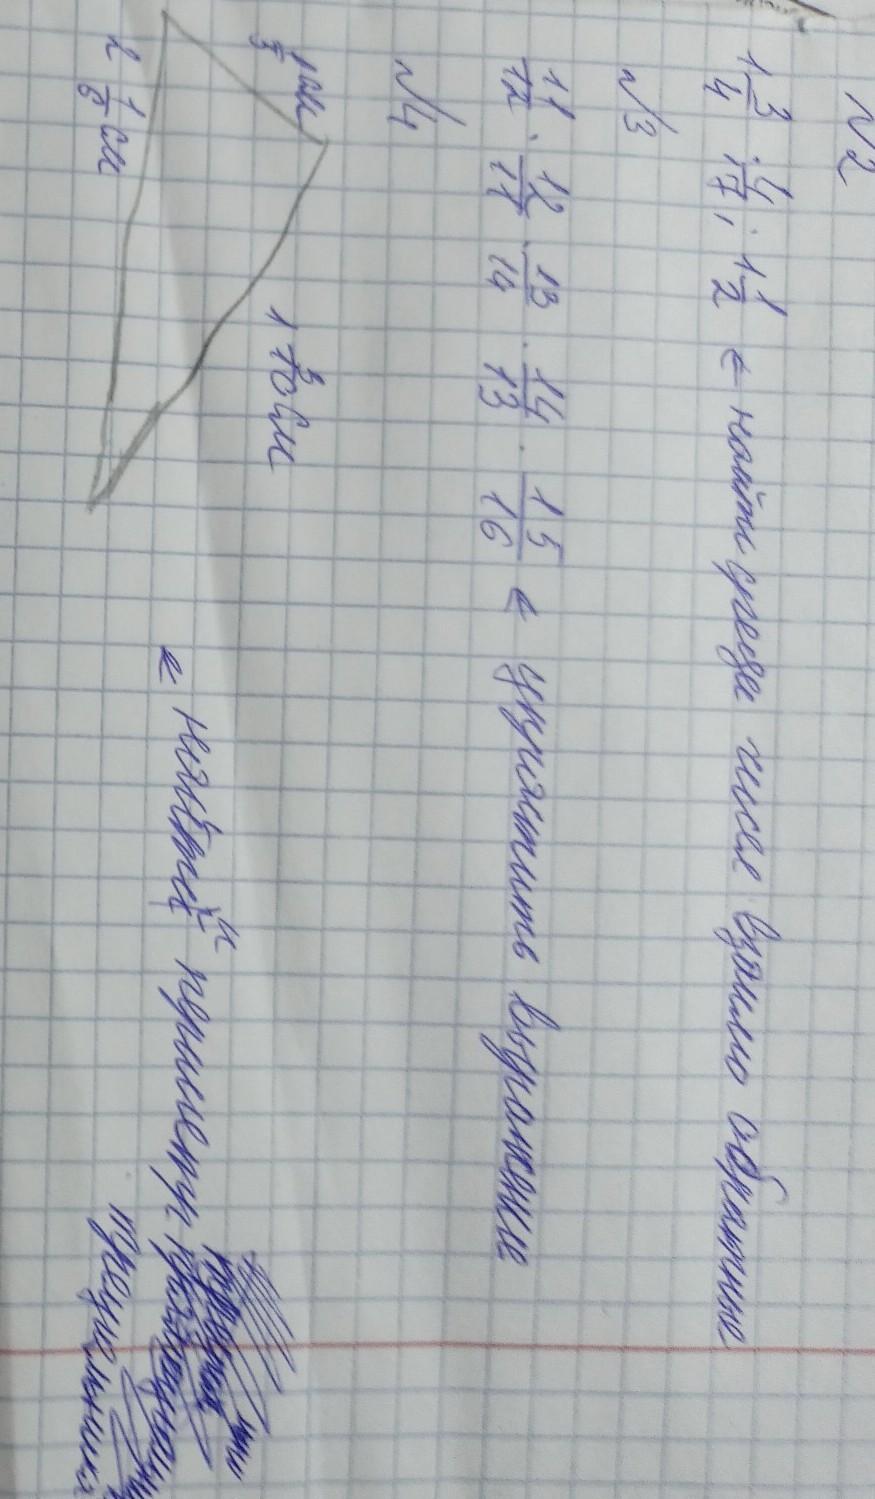 №2
1 3/4 · 4/17, · 1 1/2 ← найти среди чисел взаимо обратные
№3
11/12 · 12/11 · 13/14 · 14/13 · 15/16 ← упростить выражение
№4
1/5 см
1 3/10 см
2 1/8 см
← периметр
треугольника